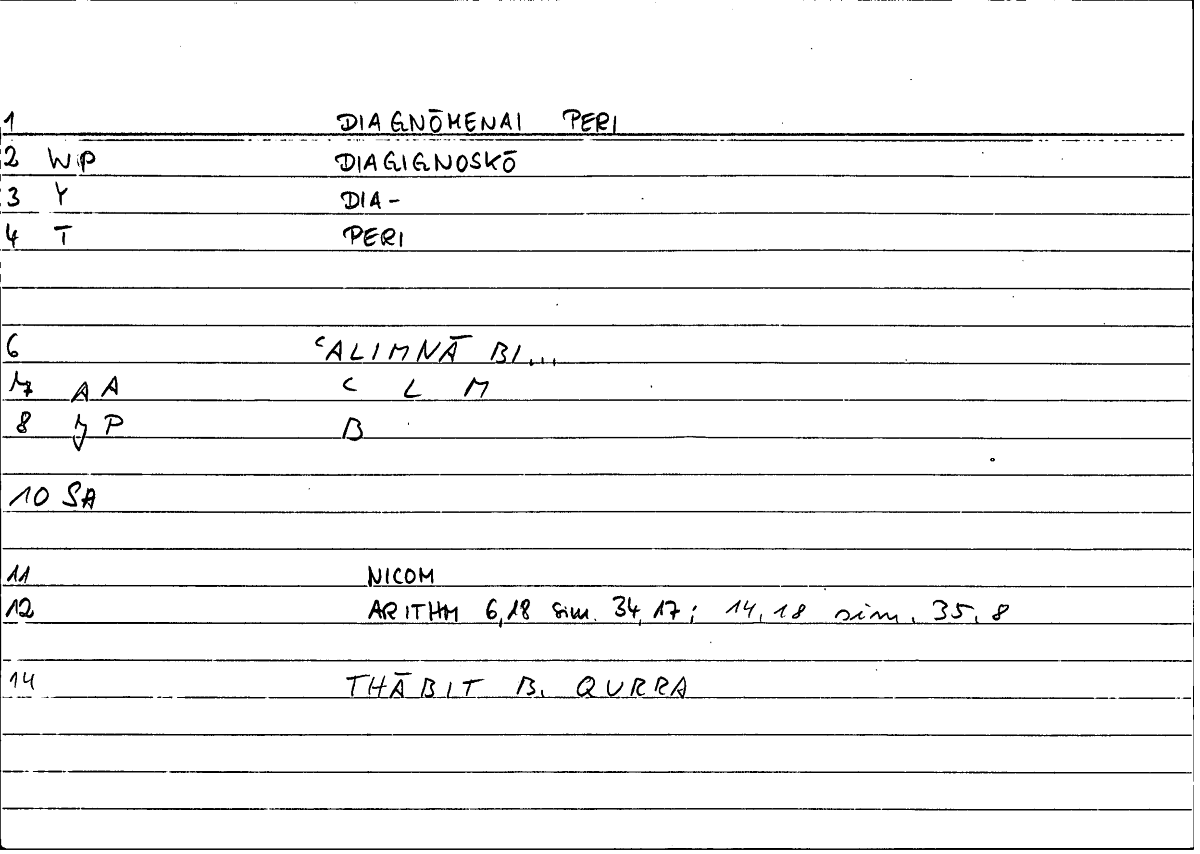 1 DIAGNŌMENAI PERI
2 WP DIAGIGNOSKŌ
3 Y DIA-
4 T PERI
6 ʿALIMNĀ BI...
7 AA ʿ L M
8 yP B
10 SA
11 NICOM
12 ARITHM 6,18 sim. 34,17; 14,18 sim. 35,8
14 THĀBIT B. QURRA